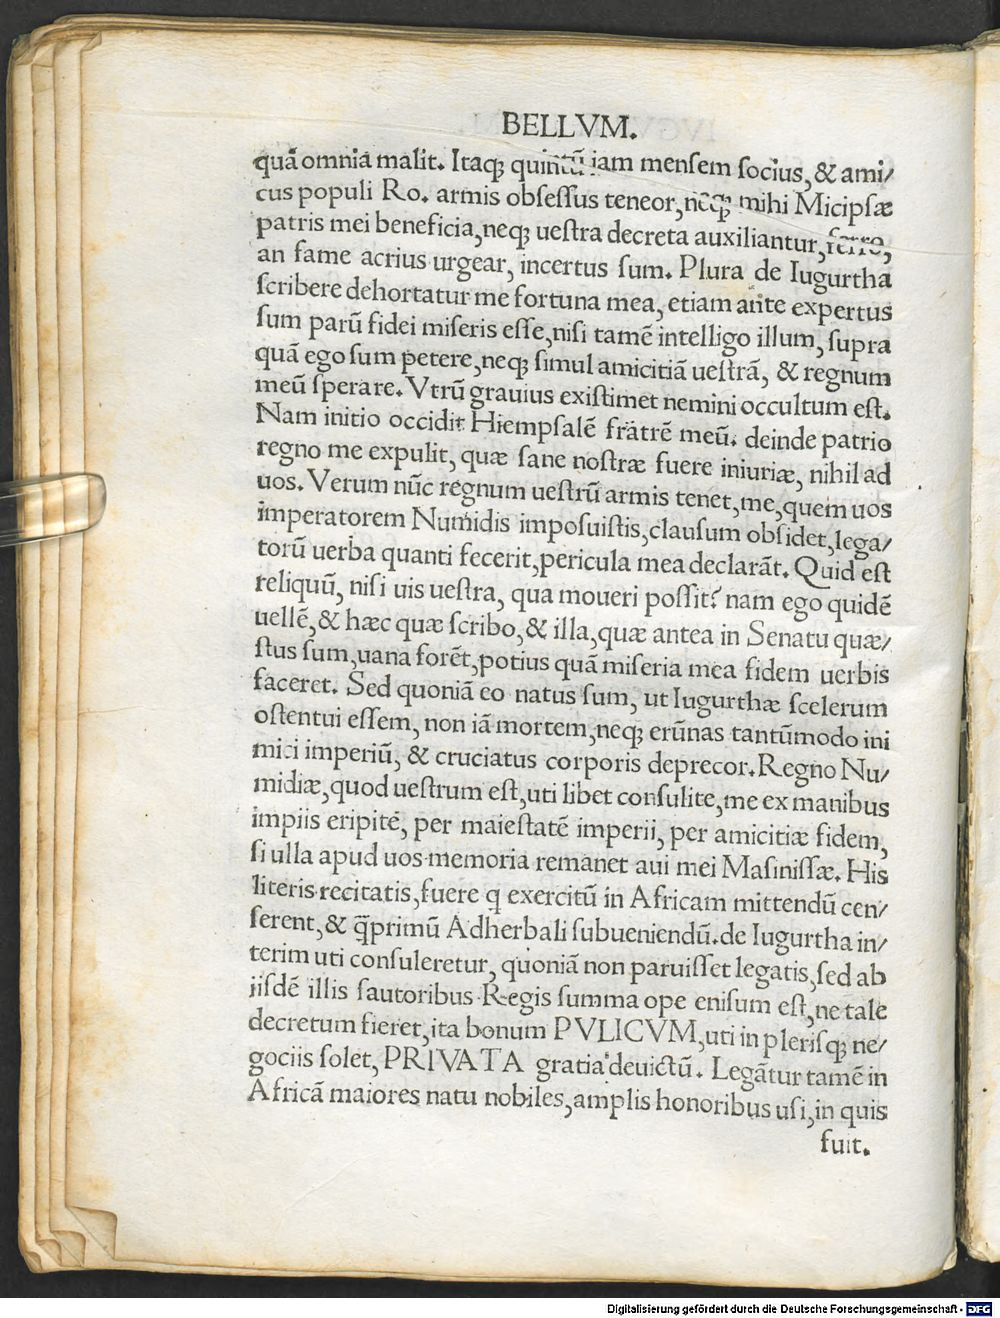 BELLVM.
quã omniã malit. Itaq; quintũ iam mensem socius, & ami/
cus populi Ro. armis obſeſſus teneor, neq; mihi Micipſæ
patris mei beneficia, neq; ueſtra decreta auxiliantur, ferro,
an fame acrius urgear, incertus ſum. Plura de Iugurtha
ſcribere dehortatur me fortuna mea, etiam ante expertus
ſum parũ fidei miſeris eſſe, niſi tamẽ intelligo illum, ſupra
quã ego ſum petere, neq; ſimul amicitiã ueſtrã, & regnum
meũ ſperare. Vtrũ grauius exiſtimet nemini occultum eſt.
Nam initio occidit Hiempſalẽ fratrẽ meũ. deinde patrio
regno me expulit, quæ ſane noſtræ fuere iniuriæ, nihil ad
uos. Verum nũc regnum ueſtrũ armis tenet, me, quem uos
imperatorem Numidis impoſuiſtis, clauſum obſidet, lega/
torũ uerba quanti fecerit, pericula mea declarãt. Quid eſt
reliquũ, niſi uis ueſtra, qua moueri poſſit? nam ego quidẽ
uellẽ, & hæc quæ ſcribo, & illa, quæ antea in Senatu quæ/
ſtus ſum, uana forẽt, potius quã miſeria mea fidem uerbis
faceret. Sed quoniã eo natus ſum, ut Iugurthæ ſcelerum
oſtentui eſſem, non iã mortem, neq; erũnas tantũmodo ini
mici imperiũ, & cruciatus corporis deprecor. Regno Nu/
midiæ, quod ueſtrum eſt, uti libet conſulite, me ex manibus
impiis eripitẽ, per maieſtatẽ imperii, per amicitiæ fidem,
ſi ulla apud uos memoria remanet aui mei Maſiniſſæ. His
literis recitatis, fuere q exercitũ in Africam mittendũ cen/
ſerent, & q̃primũ Adherbali ſubueniendũ. de Iugurtha in/
terim uti conſuleretur, quoniã non paruiſſet legatis, ſed ab
iiſdẽ illis fautoribus Regis ſumma ope eniſum eſt, ne tale
decretum fieret, ita bonum PVLICVM, uti in pleriſq; ne/
gociis ſolet, PRIVATA gratia deuictũ. Legãtur tamẽ in
Africã maiores natu nobiles, amplis honoribus uſi, in quis
fuit.
Digitalisierung gefördert durch die Deutsche Forschungsgemeinschaft - DFG